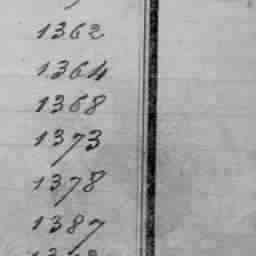 1362
1364
1368
1373
1378
1387